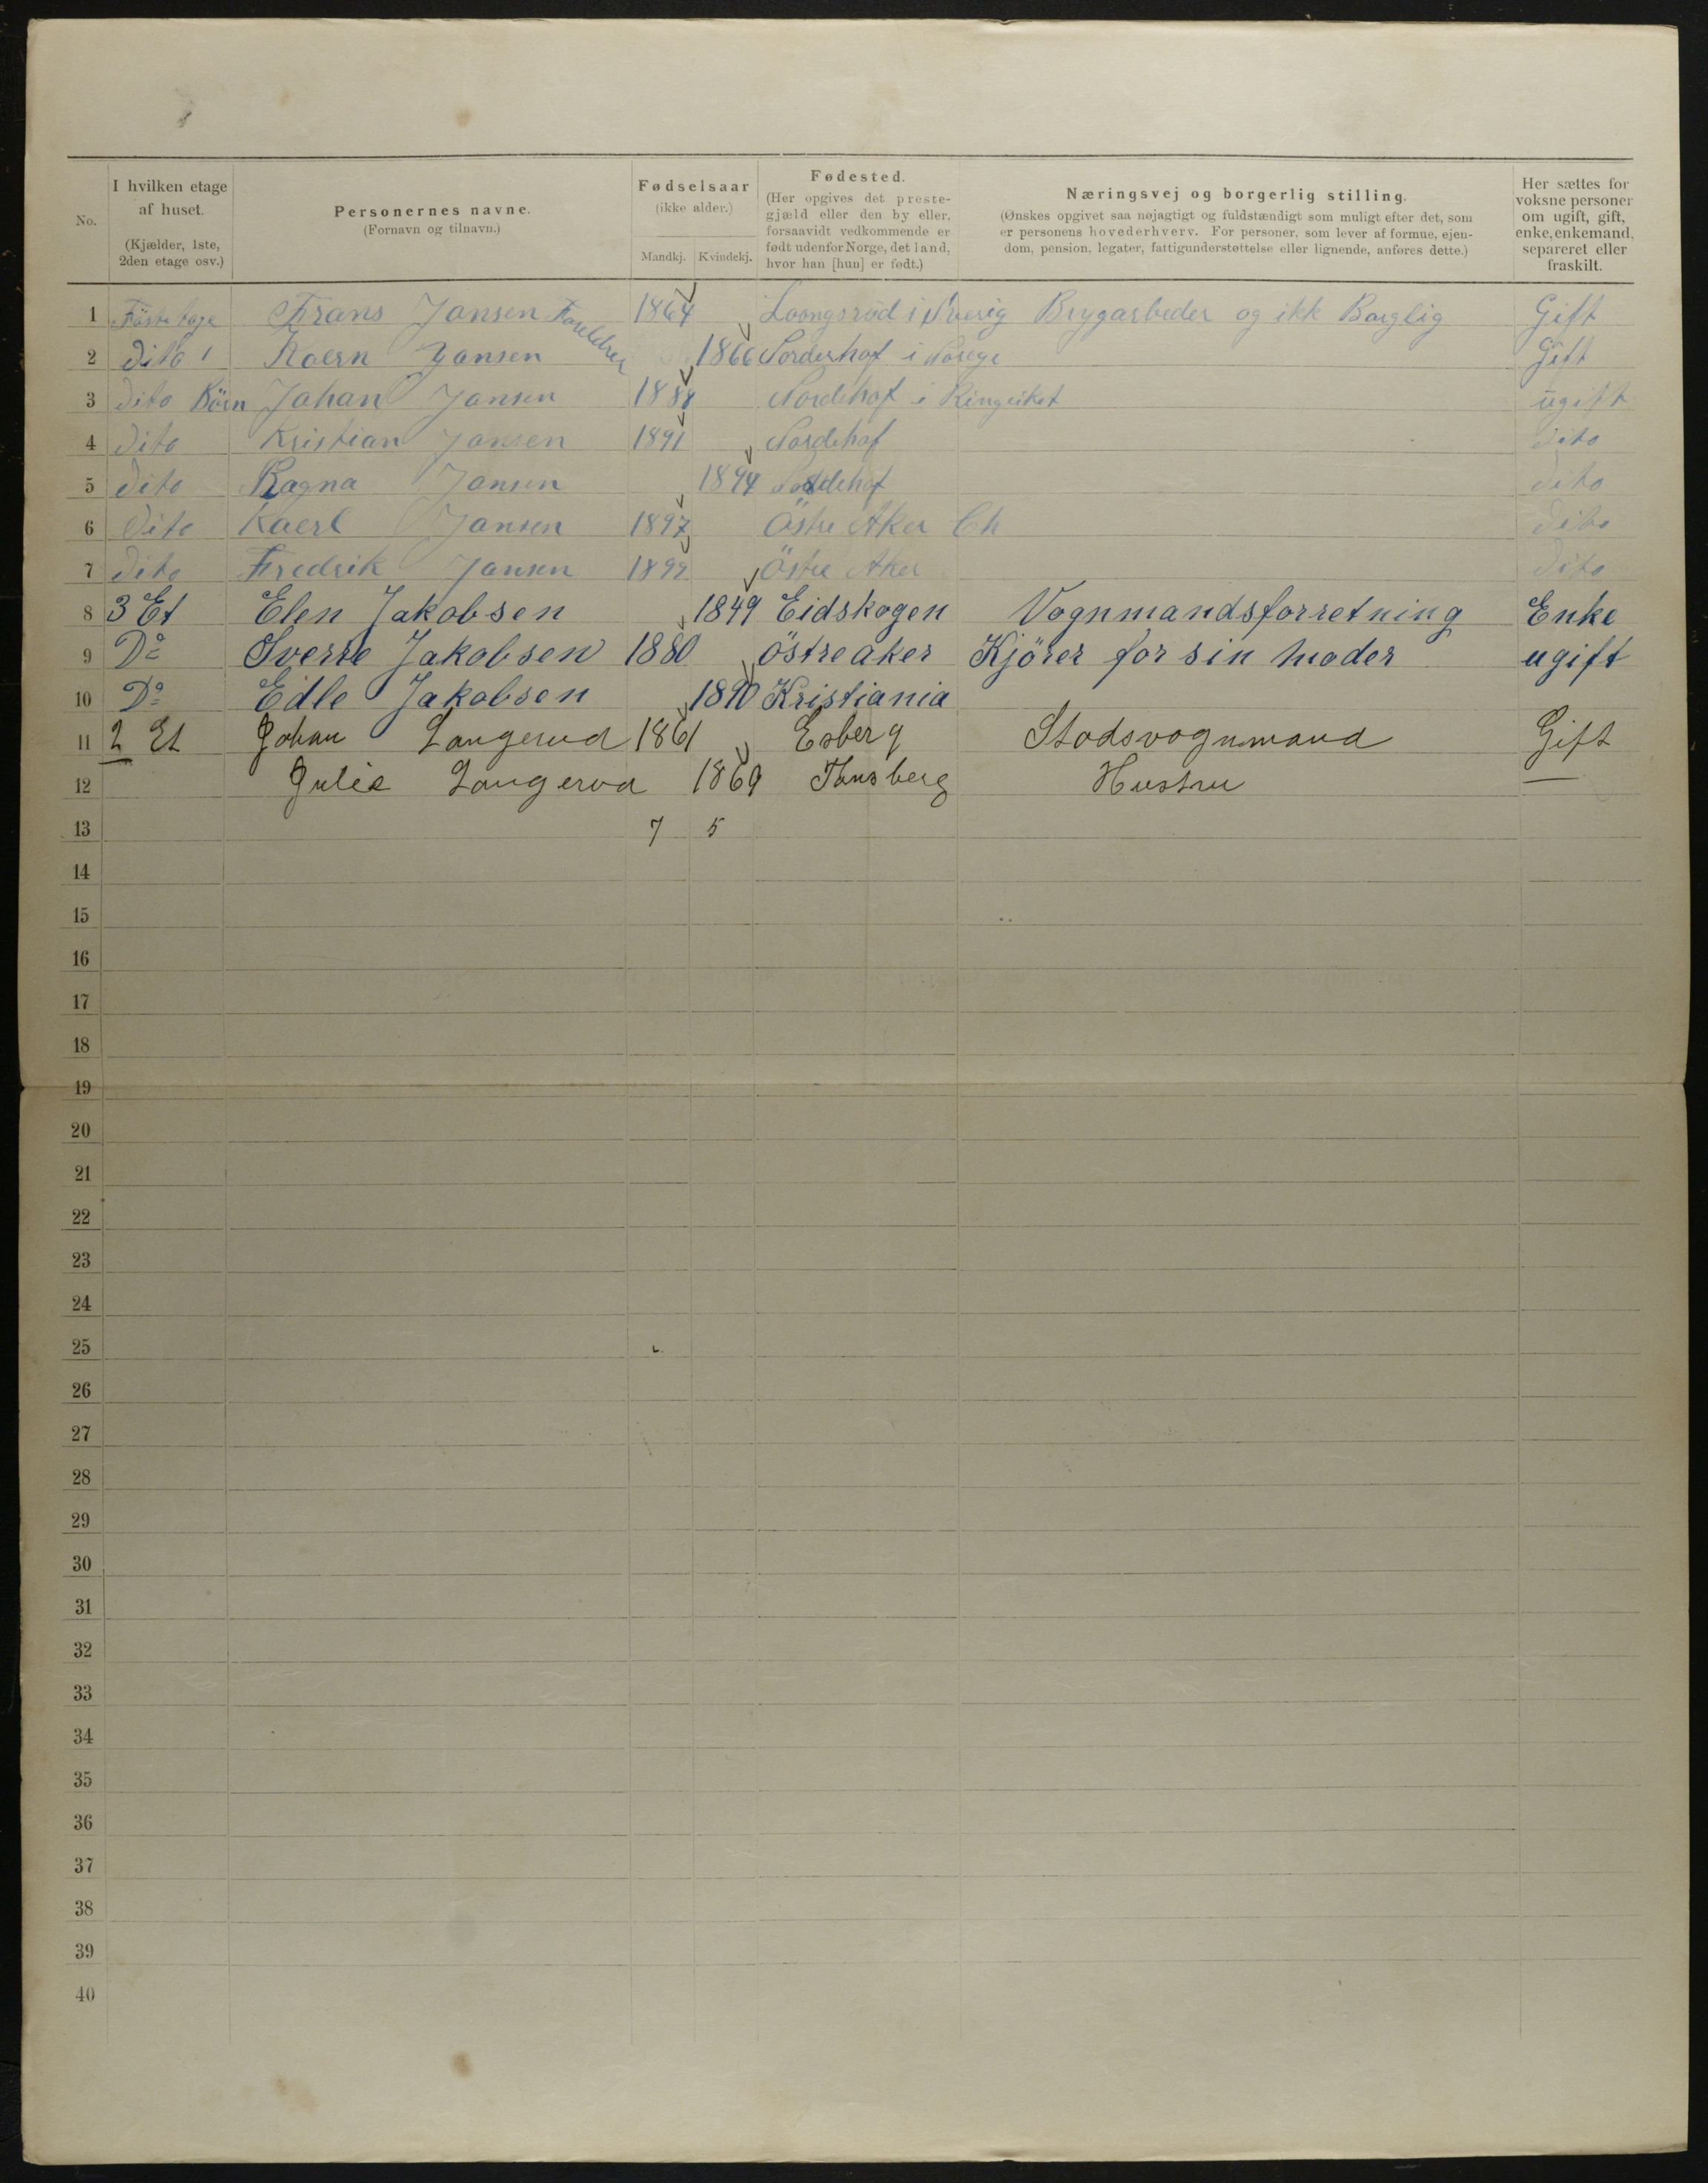 No.
I hvilken etage af huset. (Kjælder, 1ste, 2den etage osv.)
Personernes navne. (Fornavn og tilnavn.)
Fødselsaar (ikke alder.) Mandkj. Kvindekj.
Fødested. (Her opgives det prestegjæld eller den by eller, forsaavidt vedkommende er født udenfor Norge, det land, hvor han [hun] er født.)
Næringsvej og borgerlig stilling. (Ønskes opgivet saa nøjagtigt og fuldstændigt som muligt efter det, som er personens hovederhverv. For personer, som lever af formue, ejendom, pension, legater, fattigunderstøttelse eller lignende, anføres dette.)
Her sættes for voksne personer om ugift, gift, enke, enkemand, separeret eller fraskilt.
1 Frans Jansen Foreldrer 1864 i Sverig Brygarbeder og ikk Borglig Gift
2 Dito Kaern Jansen 1866 Norderhof i Norege Gift
3 Dito Börn Johan Jansen 1888 Nordehof i Ringeiket ugift
4 Dito Kristian Jansen 1891 Nordehof Dito
5 Dito Ragna Jansen 1894 Nordehof Dito
6 Dito Kaerl Jansen 1897 Östre Aker Ch Dito
7 Dito Fredrik Jansen 1899 Östre Aker Dito
8 3 Et Elen Jakobsen 1849 Eidskogen Vognmandsforretning Enke
9 Do Sverre Jakobsen 1880 östre aker Kjörer for sin moder ugift
10 Do Edle Jakobsen 1890 Kristiania
11 2 Et Johan Langerud 1861 Esberg Stadsvognmand Gift
12 Julie Langerud 1869 Tønsberg Hustru —
13 7 5
14
15
16
17
18
19
20
21
22
23
24
25
26
27
28
29
30
31
32
33
34
35
36
37
38
39
40